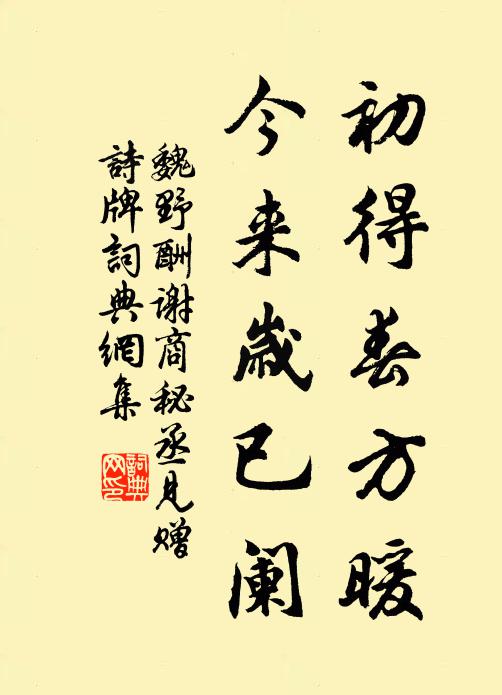 初得春方暖
今来岁已阑
魏野酬谢商秘丞见赠
詩牌詞典網集
詞典
网印